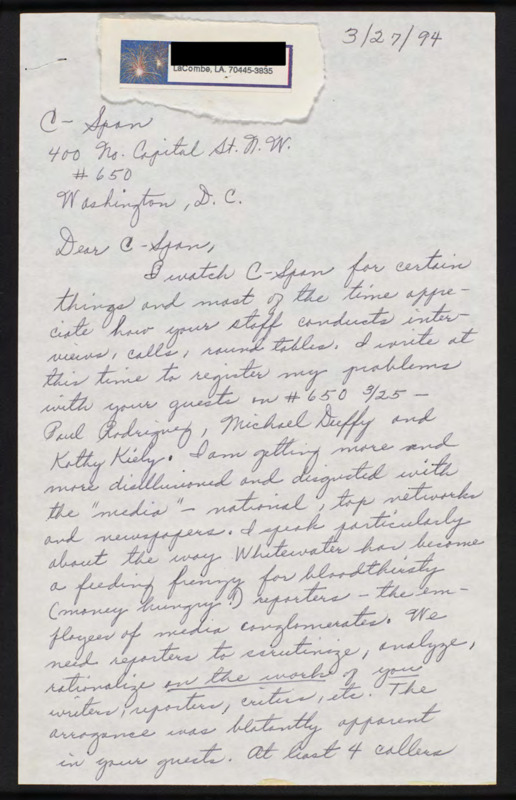 3/27/94
LaCombe, LA. 70445-3835
C-Span
400 No. Capital St. N.W.
#650
Washington, D.C.
Dear C-Span,
I watch C-Span for certain
things and most of the time appre-
ciate how your staff conducts inter-
views, calls, round tables. I write at
this time to register my problems
with your guests on #650 3/25 -
Paul Rodriguez, Michael Duffy and
Kathy Kiely. I am getting more and
more disillusioned and disgusted with
the "media" - national, top networks
and newspapers. I speak particularly
about the way Whitewater has become
a feeding frenzy for bloodthirsty
(money hungry?) reporters - the em-
ployees of media conglomerates. We
need reporters to scrutinize, analyze,
rationalize on the works of your
writers, reporters, critics, etc. The
arrogance was blatantly apparent
in your guests. At least 4 callers